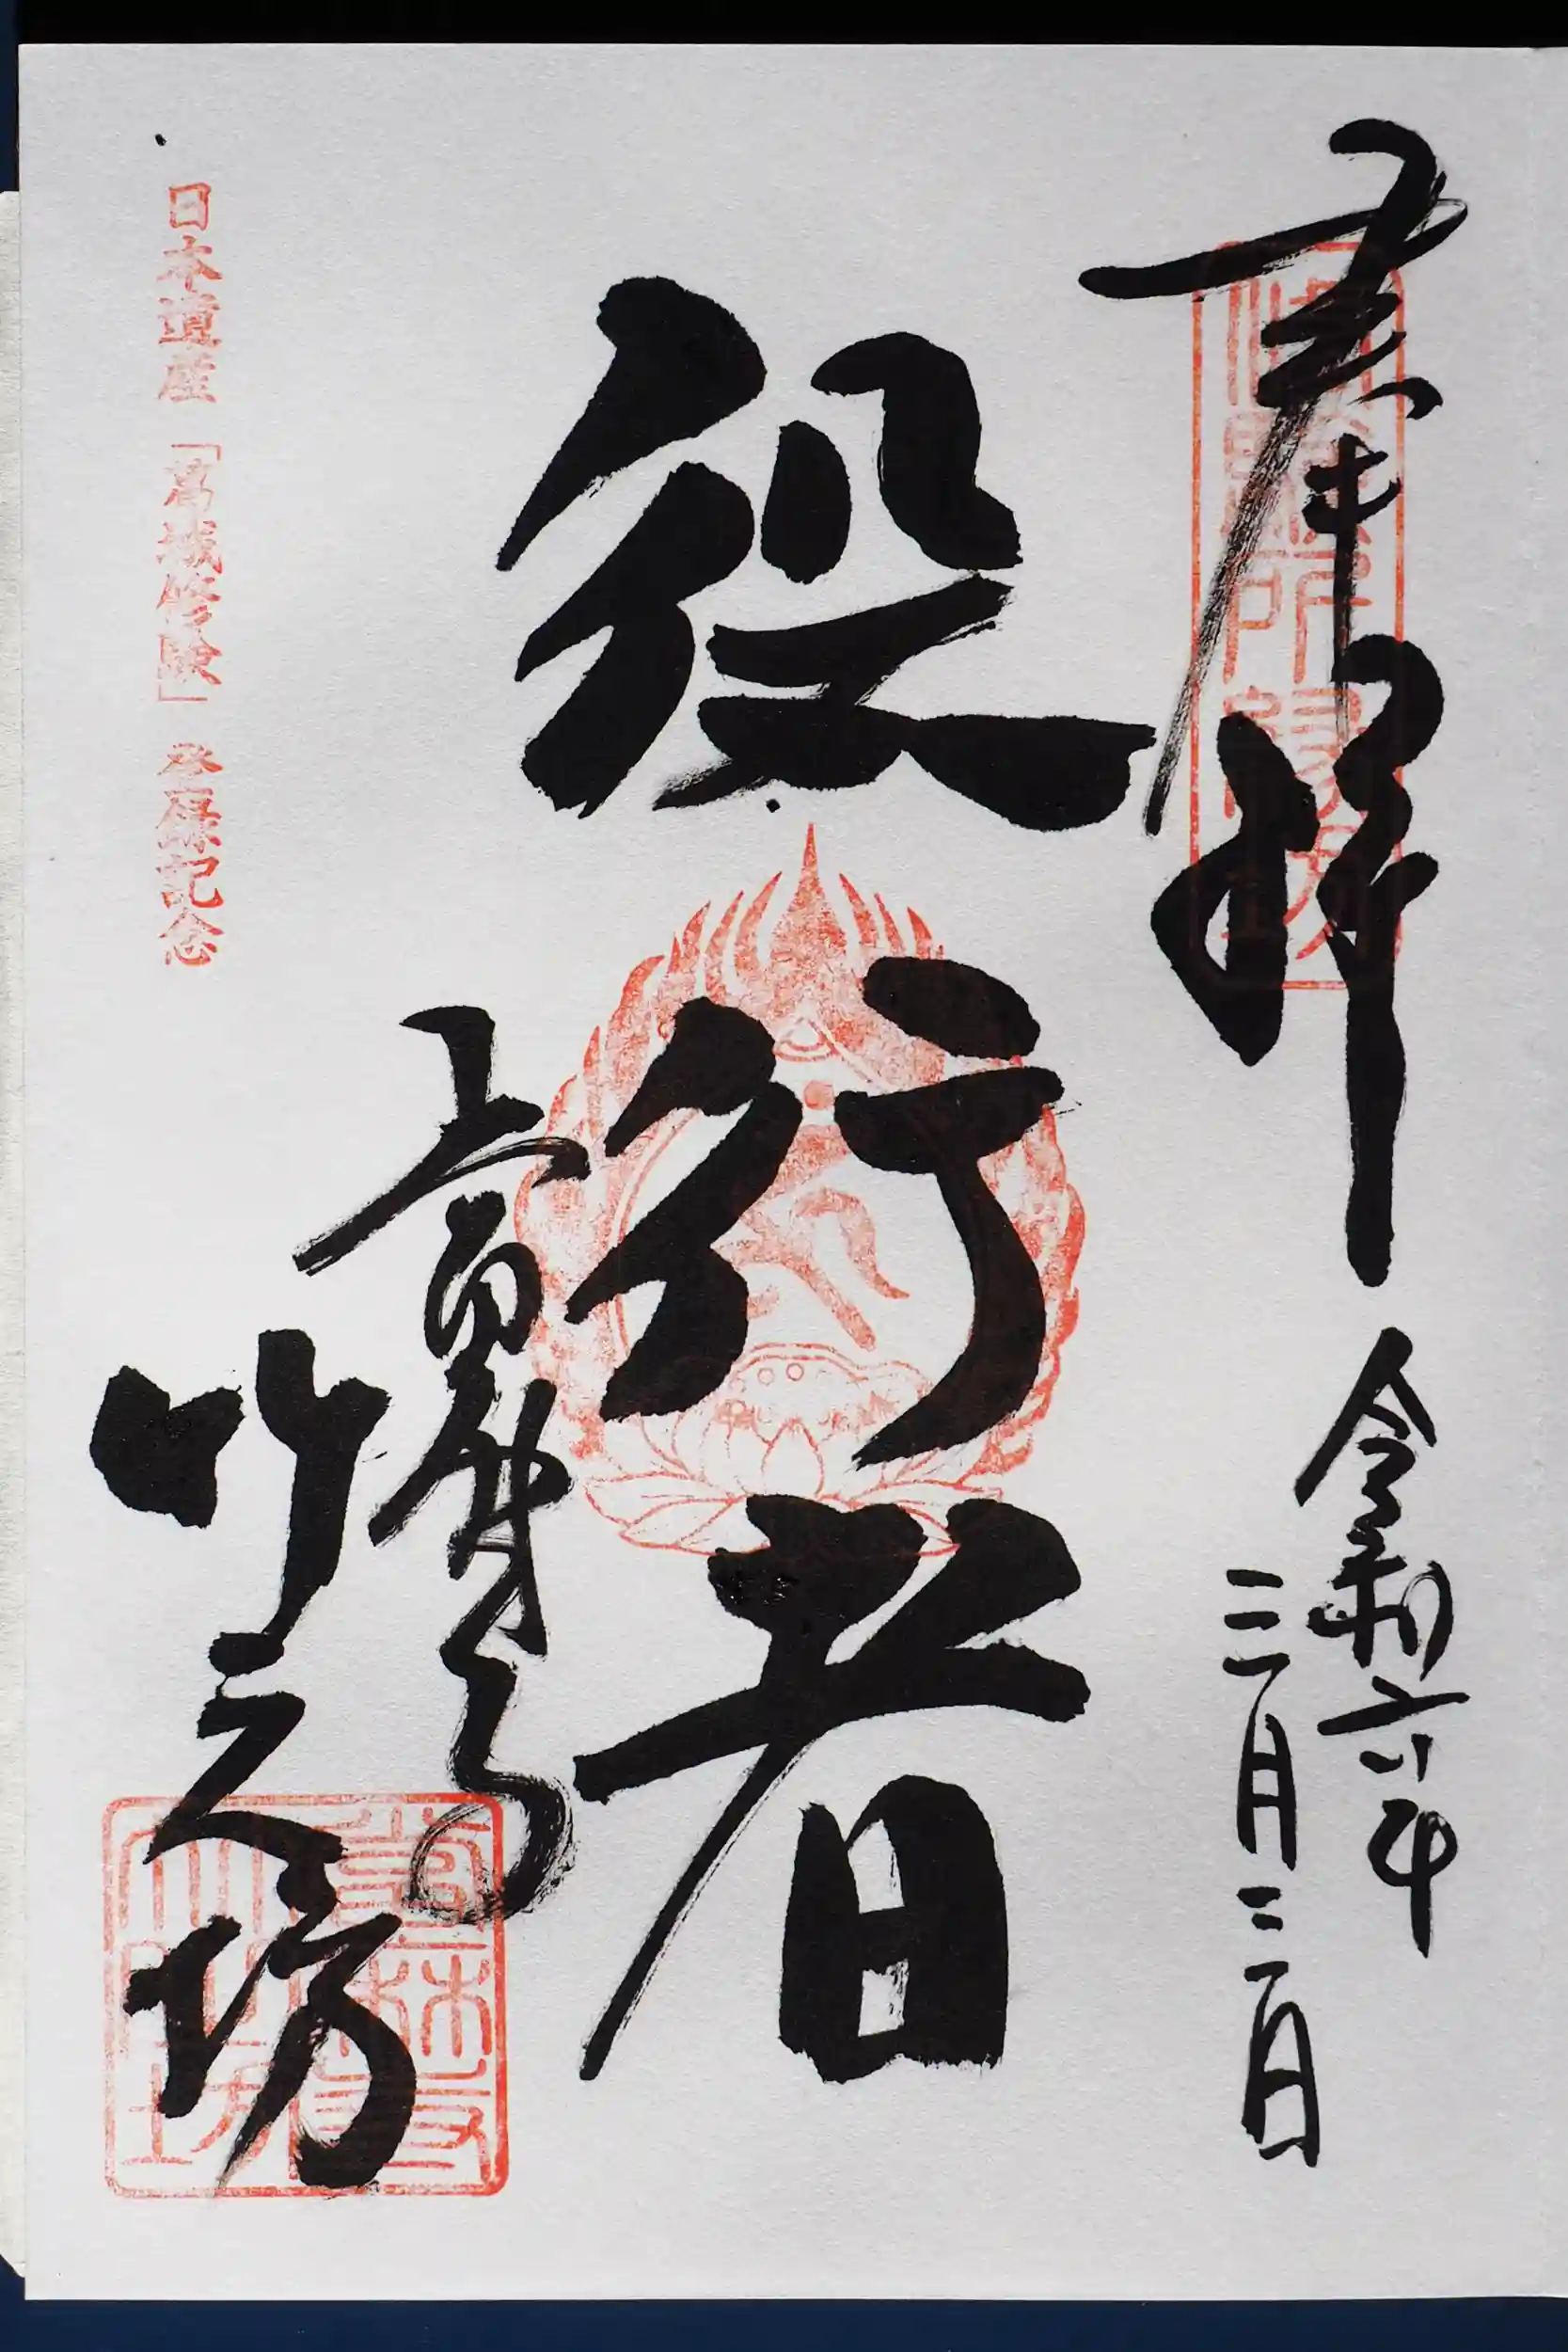 奉拝
令和六年
三月三日
役行者
當麻寺
竹之坊
日本遺産「葛城修験」登録記念